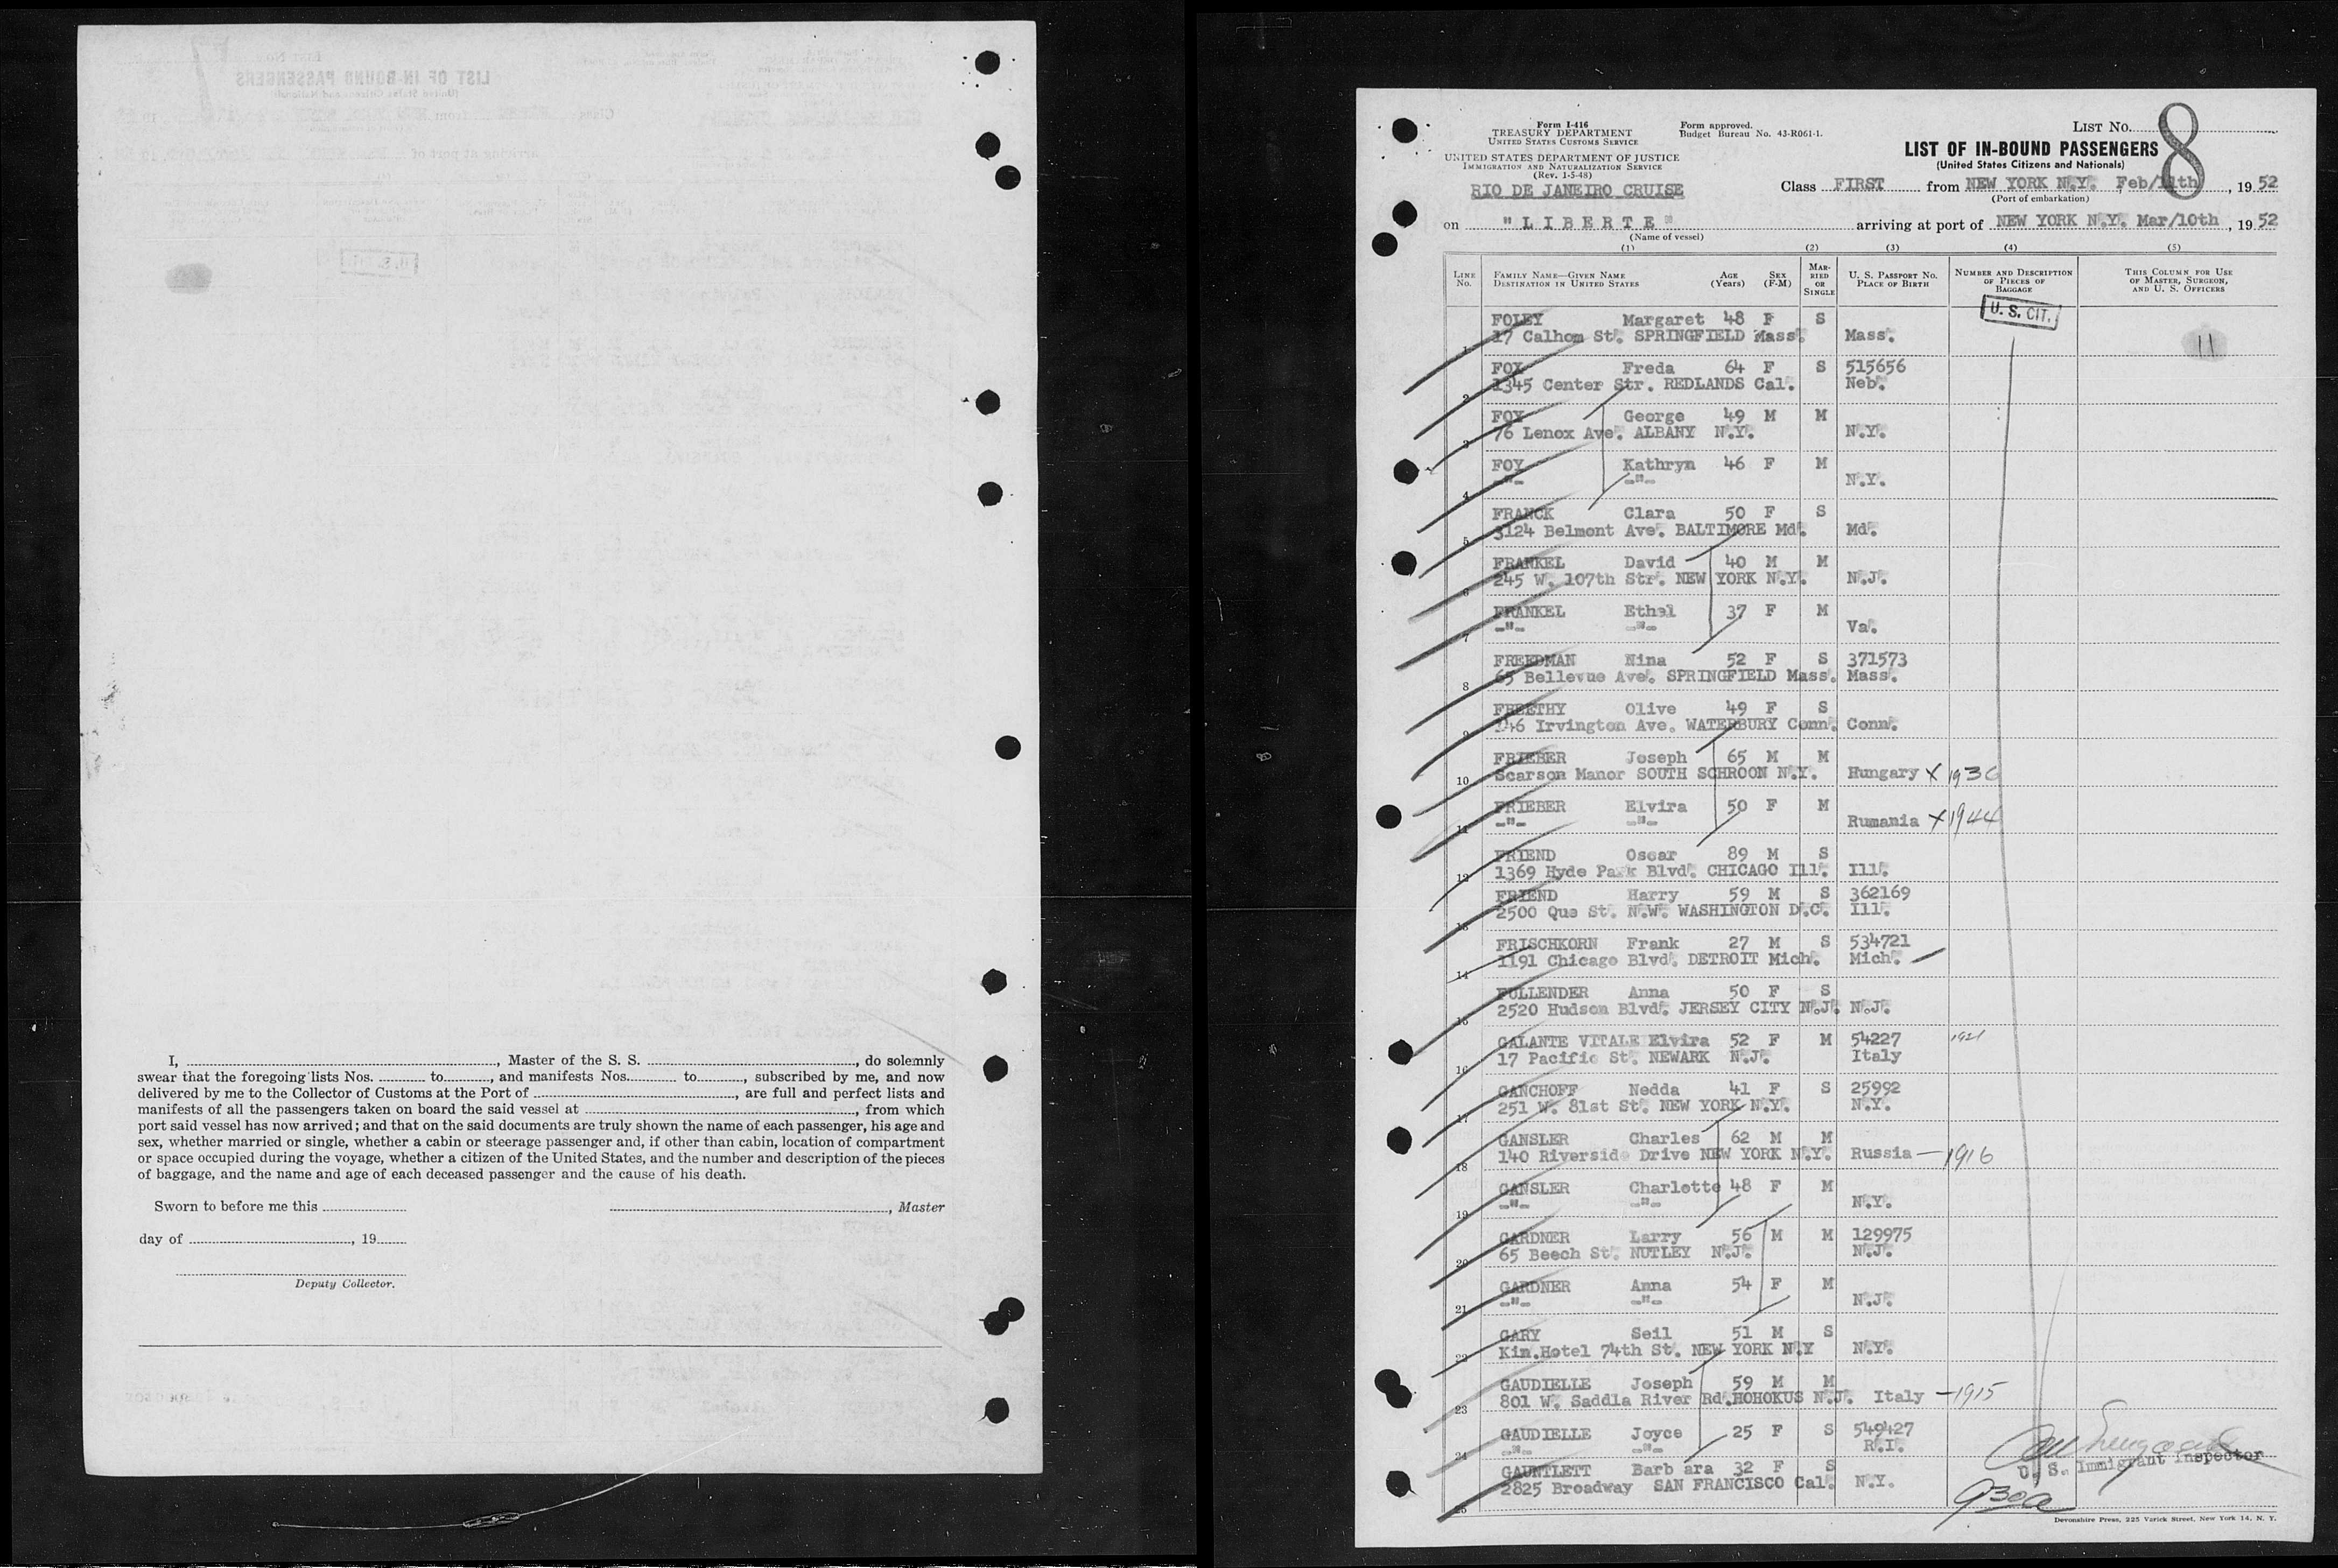 I, ........, Master of the S. S. ........, do solemnly
swear that the foregoing lists Nos. ........ to ........, and manifests Nos. ........ to ........, subscribed by me, and now
delivered by me to the Collector of Customs at the Port of ........, are full and perfect lists and
manifests of all the passengers taken on board the said vessel at ........, from which
port said vessel has now arrived; and that on the said documents are truly shown the name of each passenger, his age and
sex, whether married or single, whether a cabin or steerage passenger and, if other than cabin, location of compartment
or space occupied during the voyage, whether a citizen of the United States, and the number and description of the pieces
of baggage, and the name and age of each deceased passenger and the cause of his death.
Sworn to before me this ........ ........, Master
day of ........, 19......
Deputy Collector.
Form I-416
TREASURY DEPARTMENT
UNITED STATES CUSTOMS SERVICE
UNITED STATES DEPARTMENT OF JUSTICE
IMMIGRATION AND NATURALIZATION SERVICE
(Rev. 1-5-48)
Form approved.
Budget Bureau No. 43-R061-1.
LIST No. 8
LIST OF IN-BOUND PASSENGERS
(United States Citizens and Nationals)
RIO DE JANEIRO CRUISE
Class FIRST from NEW YORK N.Y. Feb/11th, 1952
(Port of embarkation)
on "LIBERTE" arriving at port of NEW YORK N.Y. Mar/10th, 1952
(Name of vessel)
(1) (2) (3) (4) (5)
LINE No. FAMILY NAME—GIVEN NAME DESTINATION IN UNITED STATES AGE (Years) SEX (F-M) MARRIED OR SINGLE U. S. PASSPORT No. PLACE OF BIRTH NUMBER AND DESCRIPTION OF PIECES OF BAGGAGE THIS COLUMN FOR USE OF MASTER, SURGEON, AND U. S. OFFICERS
U. S. CIT.
FOLEY Margaret 48 F S
1 17 Calhom St. SPRINGFIELD Mass. Mass. 11
FOX Freda 64 F S 515656
2 1345 Center Str. REDLANDS Cal. Neb.
FOY George 49 M M
3 76 Lenox Ave. ALBANY N.Y. N.Y.
FOY Kathryn 46 F M
4 -"- -"- N.Y.
FRANCK Clara 50 F S
5 3124 Belmont Ave. BALTIMORE Md. Md.
FRANKEL David 40 M M
6 245 W. 107th Str. NEW YORK N.Y. N.J.
FRANKEL Ethel 37 F M
7 -"- -"- Va.
FREEDMAN Nina 52 F S 371573
8 65 Bellevue Ave. SPRINGFIELD Mass. Mass.
FREETHY Olive 49 F S
9 46 Irvington Ave. WATERBURY Conn. Conn.
FRIEBER Joseph 65 M M
10 Scarson Manor SOUTH SCHROON N.Y. Hungary x 1936
FRIEBER Elvira 50 F M
11 -"- -"- Rumania x 1944
FRIEND Oscar 89 M S
12 1369 Hyde Park Blvd. CHICAGO Ill. Ill.
FRIEND Harry 59 M S 362169
13 2500 Que St. N.W. WASHINGTON D.C. Ill.
FRISCHKORN Frank 27 M S 534721
14 1191 Chicago Blvd. DETROIT Mich. Mich.
FULLENDER Anna 50 F S
15 2520 Hudson Blvd. JERSEY CITY N.J. N.J.
GALANTE VITALE Elvira 52 F M 54227 1921
16 17 Pacific St. NEWARK N.J. Italy
GANCHOFF Nedda 41 F S 25992
17 251 W. 81st St. NEW YORK N.Y. N.Y.
GANSLER Charles 62 M M
18 140 Riverside Drive NEW YORK N.Y. Russia — 1916
GANSLER Charlotte 48 F M
19 -"- -"- N.Y.
GARDNER Larry 56 M M 129975
20 65 Beech St. NUTLEY N.J. N.J.
GARDNER Anna 54 F M
21 -"- -"- N.J.
GARY Seil 51 M S
22 Kim.Hotel 74th St. NEW YORK N.Y N.Y.
GAUDIELLE Joseph 59 M M
23 801 W. Saddla River Rd.HOHOKUS N.J. Italy — 1915
GAUDIELLE Joyce 25 F S 549427
24 -"- -"- R.I.
GAUNTLETT Barbara 32 F S
25 2825 Broadway SAN FRANCISCO Cal. N.Y.
U. S. Immigrant Inspector
Devonshire Press, 225 Varick Street, New York 14, N. Y.